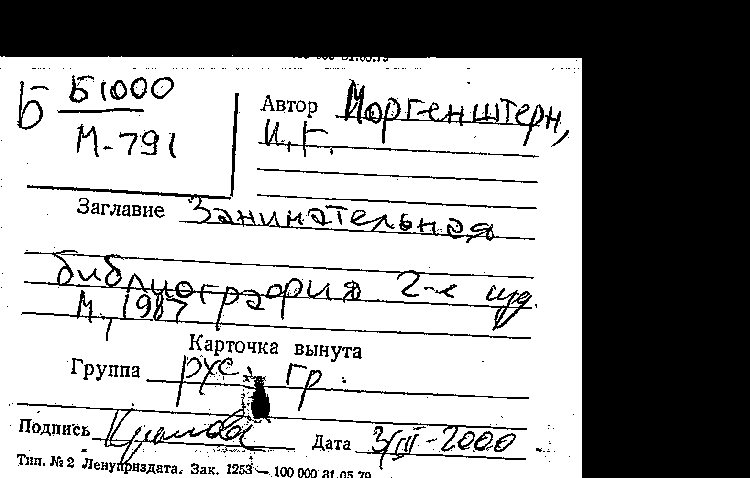 Б Б1000
М-791
Автор Моргенштерн,
И. Г.
Заглавие Занимательная
библиография 2-е изд.
М., 1987
Карточка вынута
Группа рус. гр.
Подпись
Дата 3/III-2000
Тип. № 2 Ленуприздата. Зак. 1253 — 100 000 31.05.79